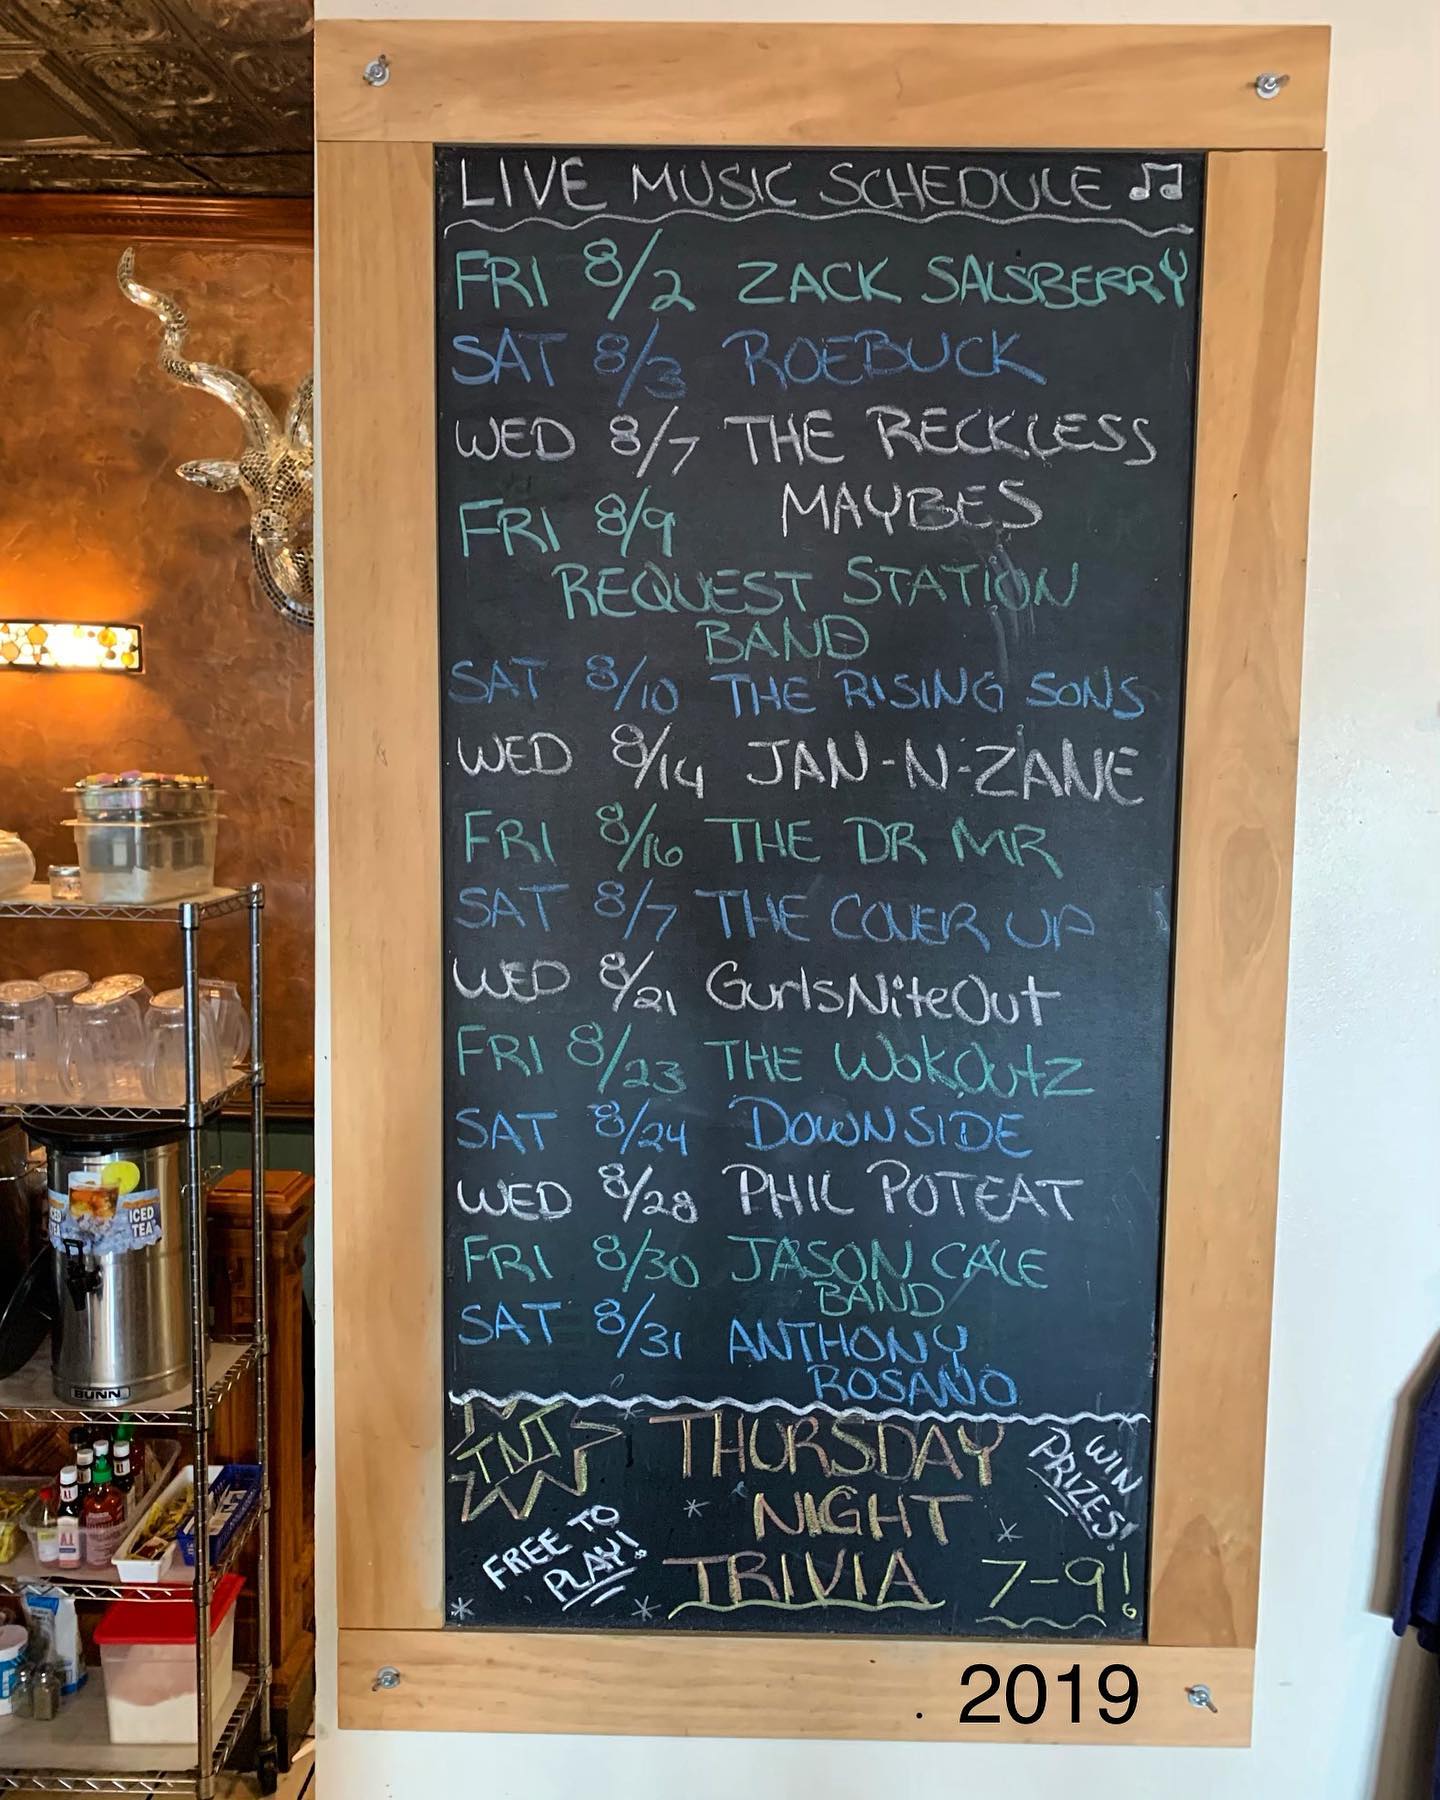 LIVE MUSIC SCHEDULE
FRI 8/2 ZACK SALSBERRY
SAT 8/3 ROEBUCK
WED 8/7 THE RECKLESS
MAYBES
FRI 8/9
REQUEST STATION
BAND
SAT 8/10 THE RISING SONS
WED 8/14 JAN-N-ZANE
FRI 8/16 THE DR MR
SAT 8/7 THE COVER UP
WED 8/21 GurlsNiteOut
FRI 8/23 THE WokOutz
SAT 8/24 DOWNSIDE
WED 8/28 PHIL POTEAT
FRI 8/30 JASON CALE
BAND
SAT 8/31 ANTHONY
ROSANO
TNT THURSDAY
NIGHT
TRIVIA 7-9!
WIN
PRIZES!
FREE TO
PLAY!
. 2019
ICED
TEA
ICED
TEA
BUNN
A.1